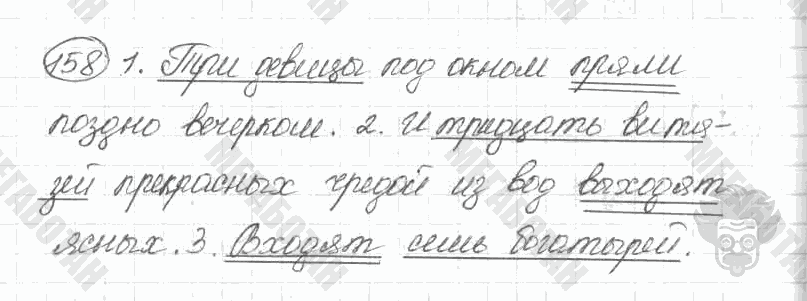 158 1. Три девицы под окном пряли
поздно вечерком. 2. И тридцать витя-
зей прекрасных чредой из вод выходят
ясных. 3. Входят семь богатырей.